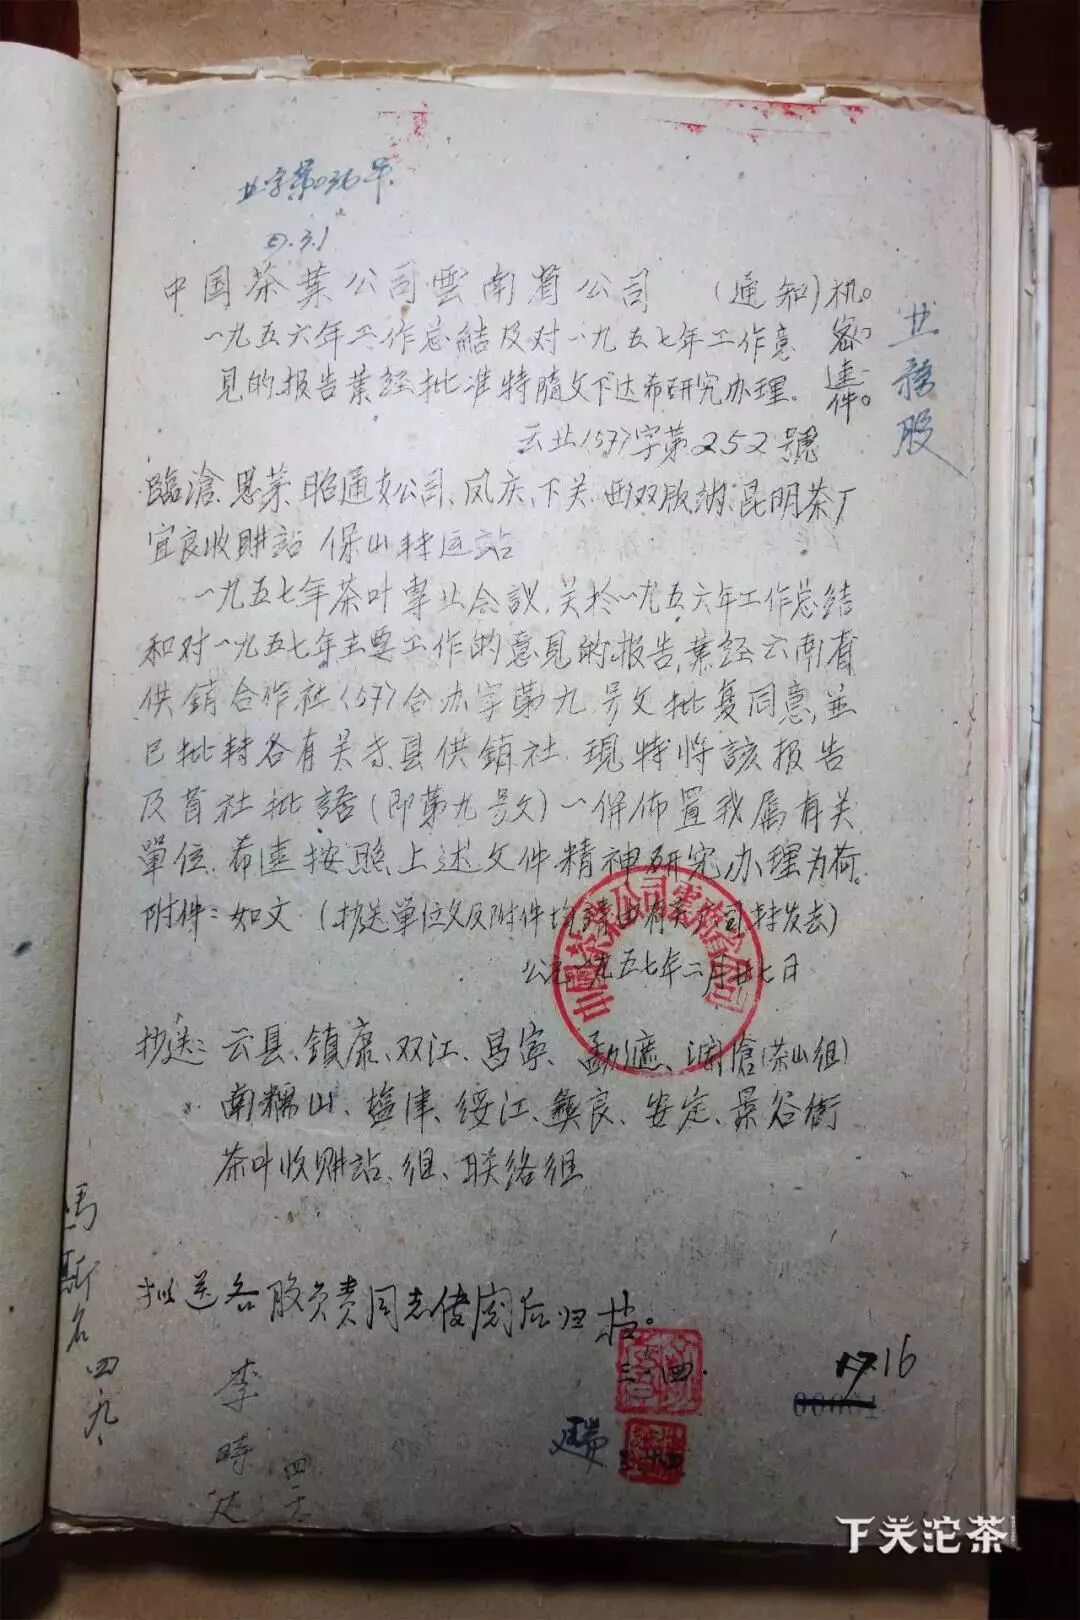 业字第036号
57.3.1
中国茶葉公司雲南省公司 (通知) 机密速件。
一九五六年工作总結及对一九五七年工作意
見的报告業经批准特随文下达希研究办理.
云业(57)字第252號
业務股
臨滄、思茅、昭通支公司、凤庆、下关、西双版納、昆明茶厂
宜良收購站 保山转运站
一九五七年茶叶專业会議,关於一九五六年工作总结
和对一九五七年主要工作的意見的报告,業经云南省
供銷合作社(57)合办字第九号文批复同意,並
已批转各有关专县供銷社.現特将該报告
及省社批語(即第九号文)一併佈置我属有关
單位.希速按照上述文件精神研究办理为荷。
附件:如文.(抄送單位文及附件均請由有关公司转发去)
公元一九五七年二月廿七日
中國茶葉公司雲南省公司
抄送:云县、鎮康、双江、昌寧、勐遮、澜滄(茶山组)
南糯山、塩津、绥江、彝良、安定、景谷街
茶叶收購站、组、联络组
拟送各股负责同志传阅后归档。
三.四.
李時达 四
馬斯名 四.九.
瑞
17 16
00061
下关沱茶